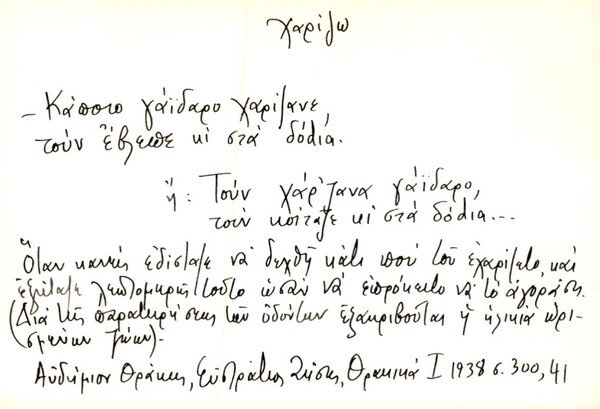 χαρίζω
– Κάποτο γάϊδαρο χαρίζανε,
τούν ἔβλεπε κὶ στὰ δόdια.
ἤ: Τούν χάρ'ζανα γάϊδαρο,
τούν κοίταζε κὶ στὰ δόdια...
Ὅταν κανεὶς ἐδίσταζε νὰ δεχθῇ κάτι ποὺ τοῦ ἐχαρίζετο, καὶ
ἐξήταζε λεπτομερῶς τοῦτο ὡσὰν νὰ ἐπρόκειτο νὰ τὸ ἀγοράσῃ.
(Διὰ τῆς παρατηρήσεως τῶν ὀδόντων ἐξακριβοῦται ἡ ἡλικία ὡρι-
σμένων ζώων)-
Αὐδήμιον Θράκης, Εὐστράτιος Ζήσης, Θρακικά Ι 1938 σ. 300, 41